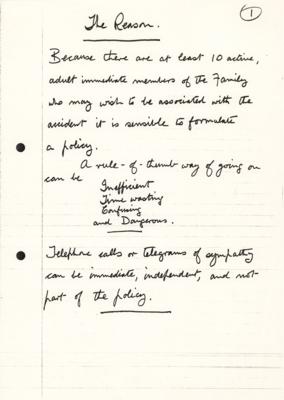 1
The Reason.
Because there are at least 10 active,
adult immediate members of the Family
who may wish to be associated with the
accident it is sensible to formulate
a policy.
A rule-of-thumb way of going on
can be
Inefficient
Time wasting
Confusing
and Dangerous.
Telephone calls or telegrams of sympathy
can be immediate, independent, and not
part of the policy.